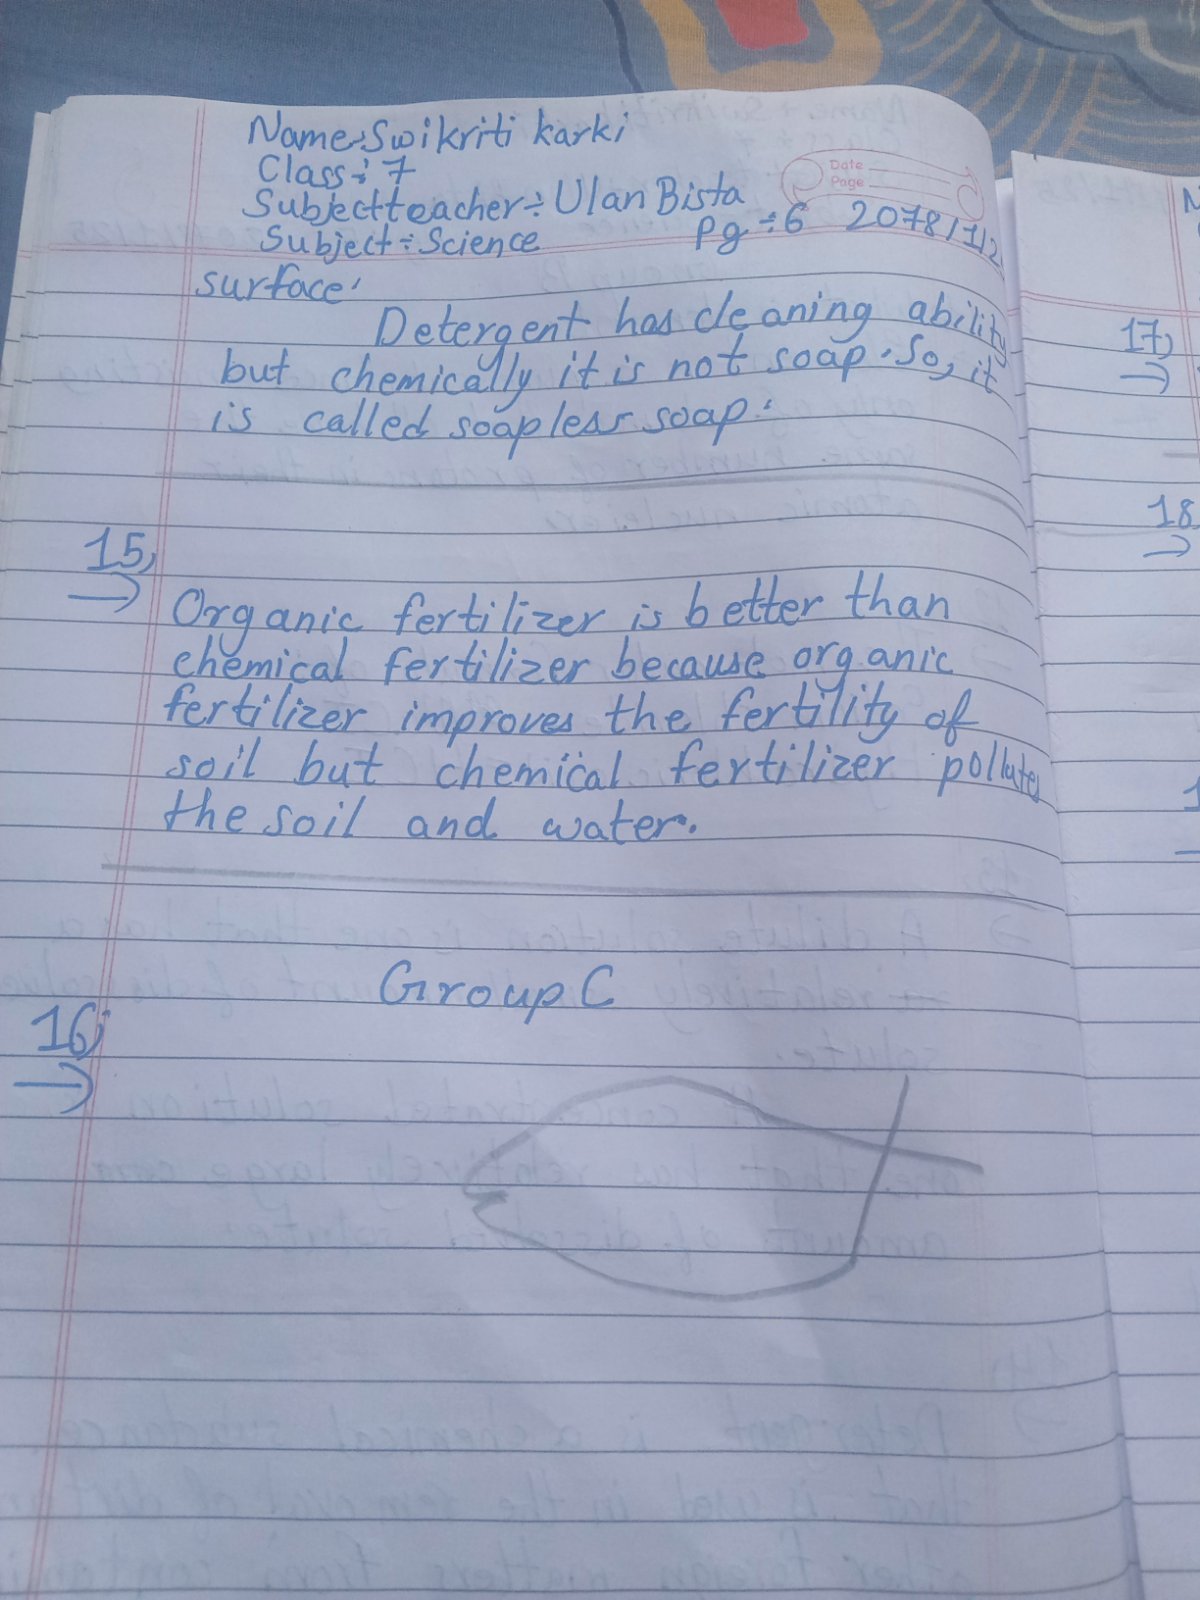 Name:Swikriti karki
Class:7
Date
Page
Subjectteacher÷Ulan Bista
Subject÷Science
Pg÷6 2078/1/2
surface.
Detergent has cleaning ability
but chemically it is not soap. So, it
is called soapless soap.
15,
→
Organic fertilizer is better than
chemical fertilizer because organic
fertilizer improves the fertility of
soil but chemical fertilizer pollutes
the soil and water.
Group C
16,
→
17,
→
18
→